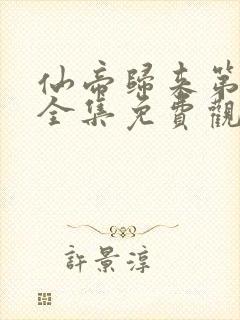 仙帝歸來第
全集免費觀
許景淳